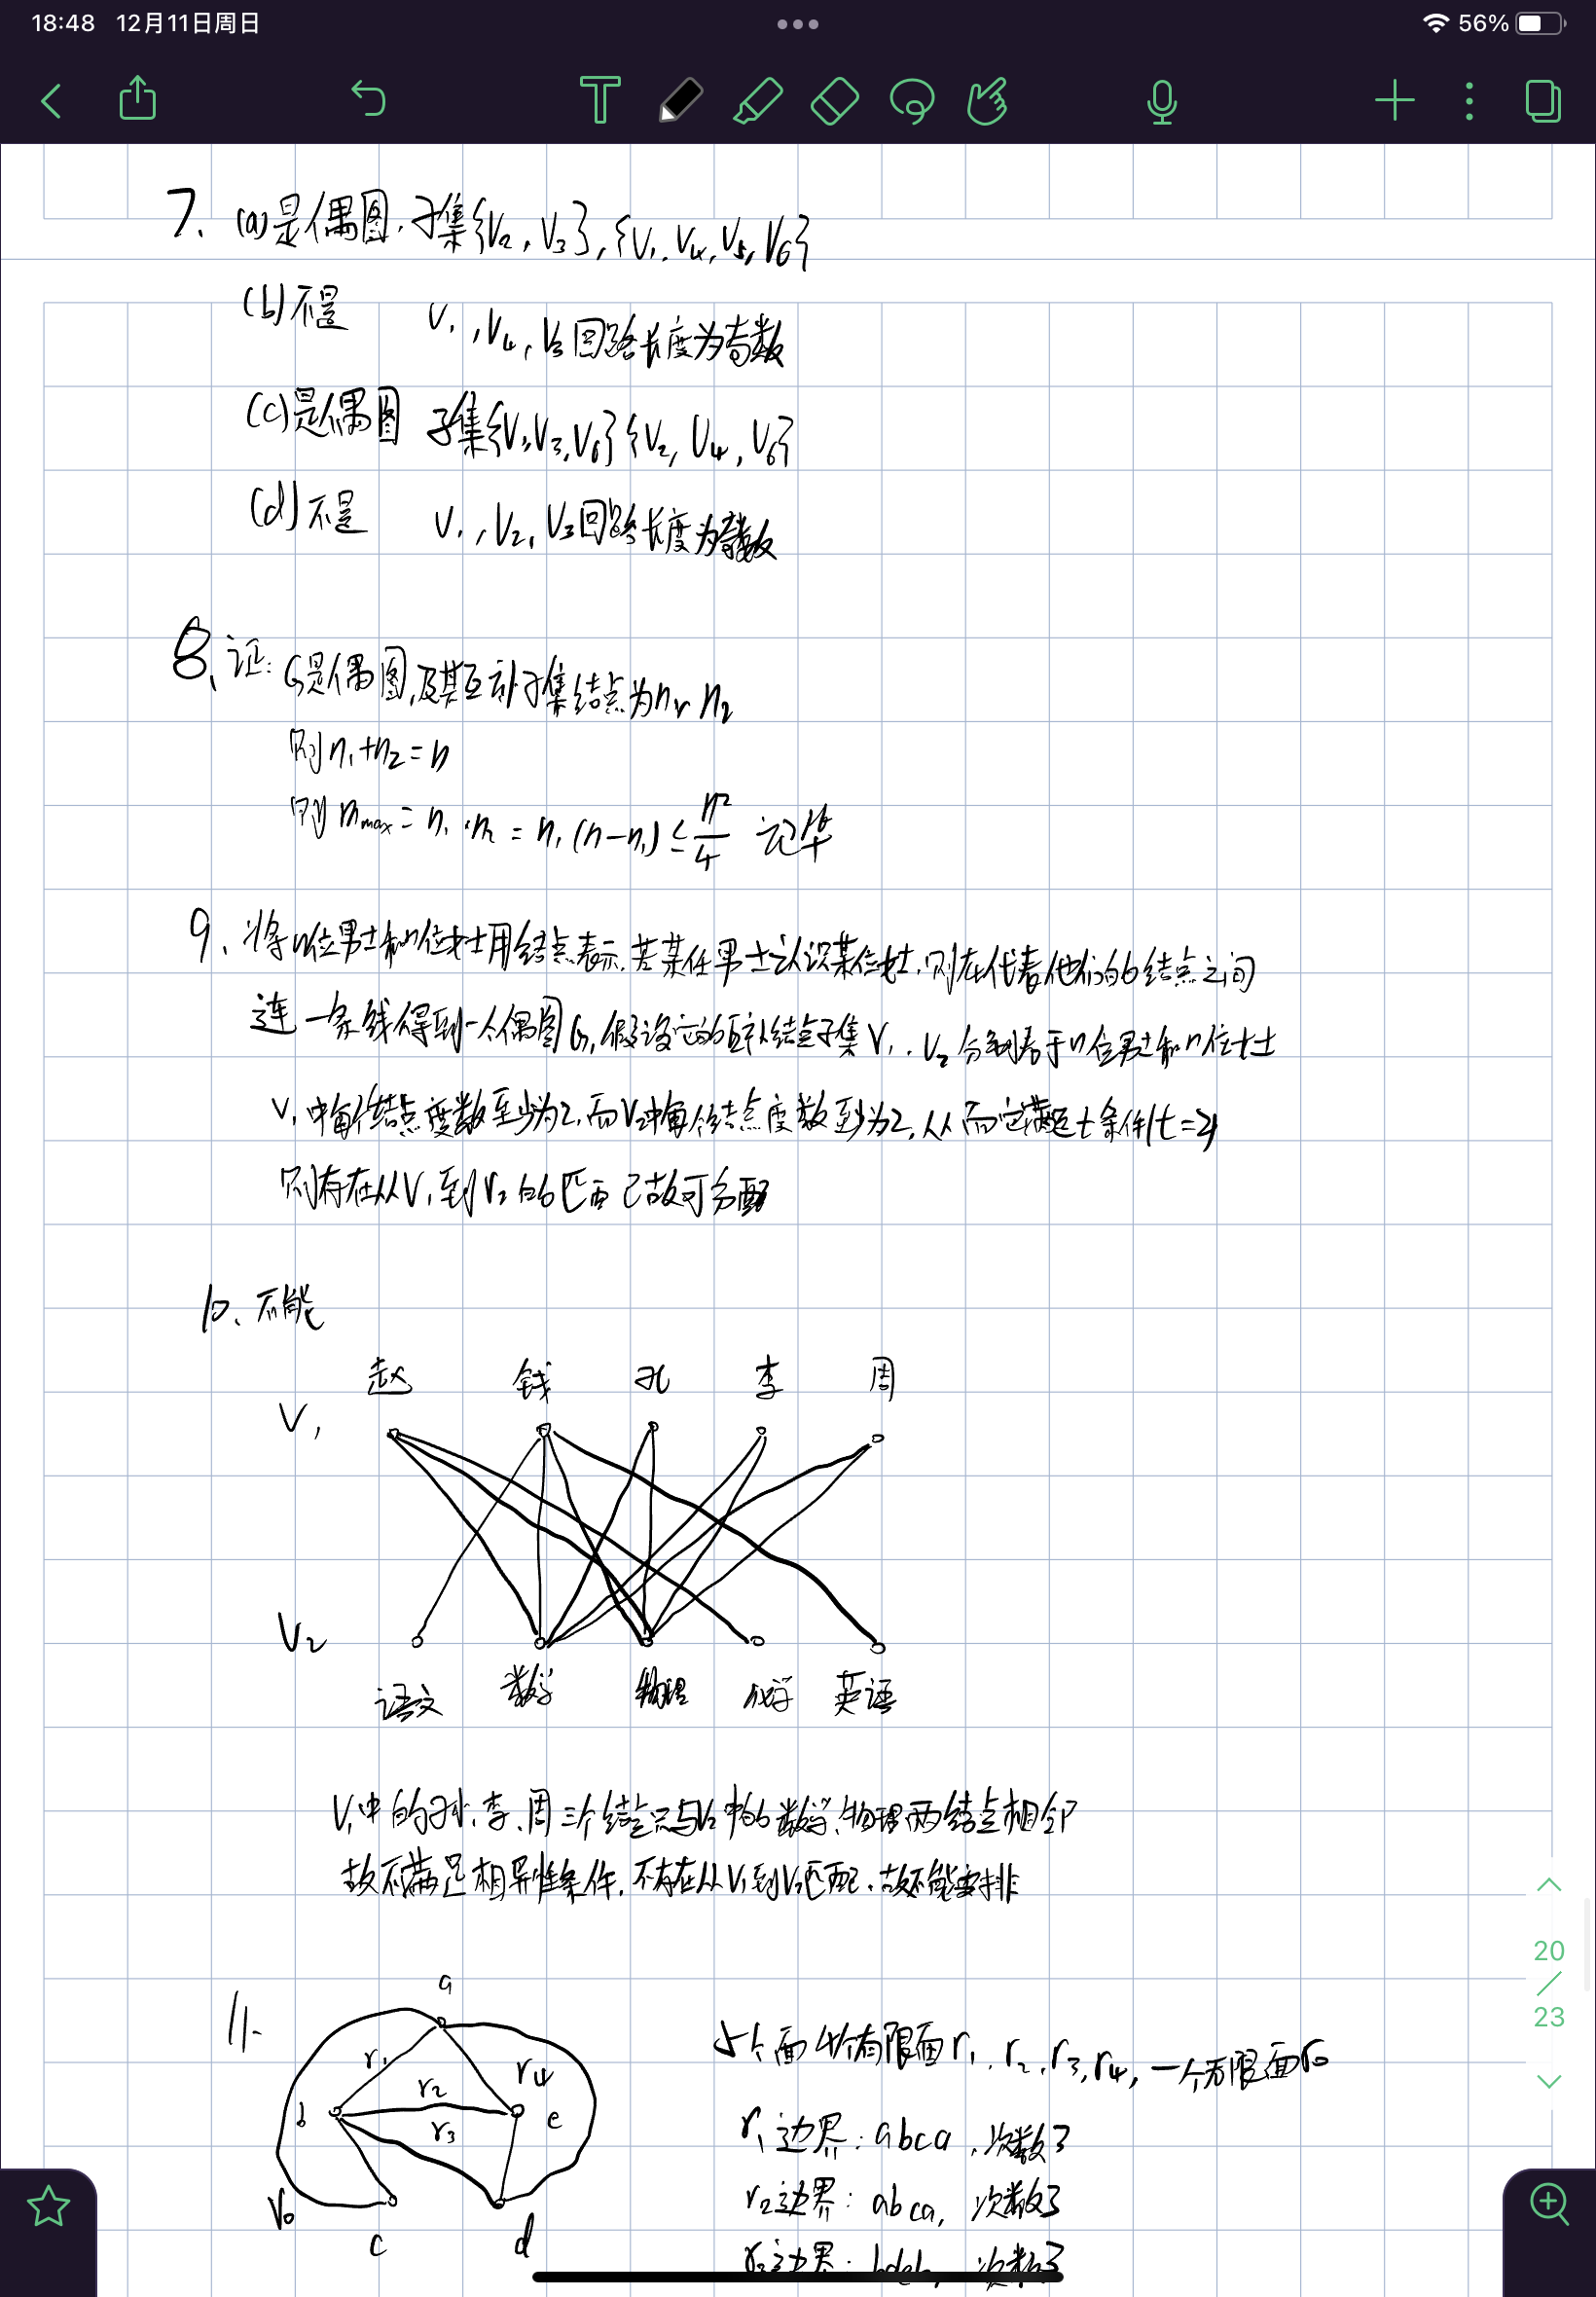 18:48 12月11日周日
56%
7. (a)是偶图.子集{V₂, V₃}, {V₁, V₄, V₅, V₆}
(b)不是 V₁, V₄, V₃回路长度为奇数
(c)是偶图 子集{V₁,V₃,V₆} {V₂, V₄, V₆}
(d)不是 V₁, V₂, V₃回路长度为奇数
8、证: G是偶图,及其互补子集结点为n₁, n₂
则n₁+n₂=n
则m_max=n₁·n₂=n₁(n-n₁)≤n²/4 记毕
9、将n位男士和n位女士用结点表示.若某位男士认识某位女士,则在代表他们的结点之间
连一条线得到一个偶图G,假设它的互补结点子集V₁, V₂分别表示n位男士和n位女士
V₁中每个结点度数至少为2,而V₂中每个结点度数至少为2,从而它满足t条件(t=2)
则存在从V₁到V₂的匹配 故可分配
10、不能
赵 钱 孔 李 周
V₁
V₂
语文 数学 物理 化学 英语
V₁中的孔、李、周三个结点只与V₂中的数学、物理两结点相邻
故不满足相异性条件,不存在从V₁到V₂匹配.故不能安排
11.
a
r₁ r₂ r₄
b r₃ e
r₀
c d
5个面 4个有限面r₁, r₂, r₃, r₄, 一个无限面r₀
r₁边界: abca, 次数3
r₂边界: abca, 次数3
r₃边界: 次数3
20
/
23